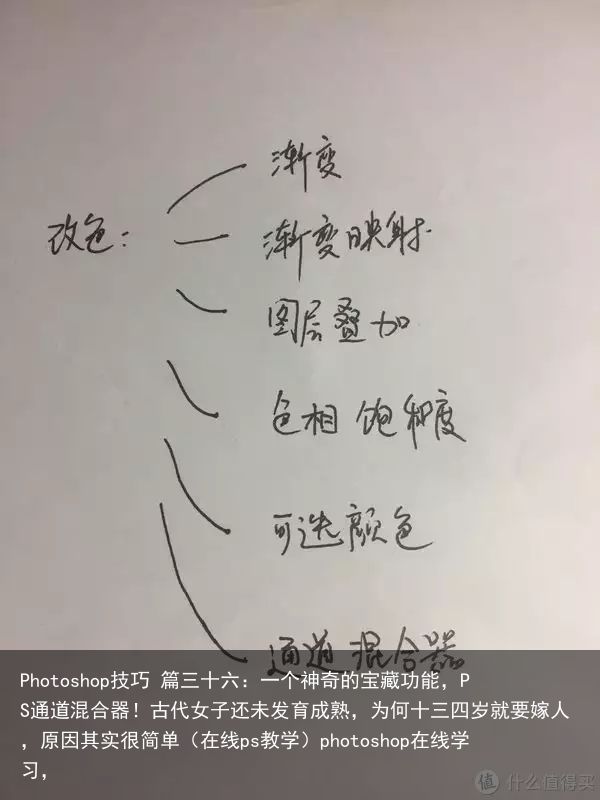 渐变
改色：
渐变映射
图层叠加
色相 饱和度
可选颜色
通道混合器
Photoshop技巧 篇三十六：一个神奇的宝藏功能，P
S通道混合器！古代女子还未发育成熟，为何十三四岁就要嫁人
，原因其实很简单（在线ps教学）photoshop在线学
习，
值 什么值得买